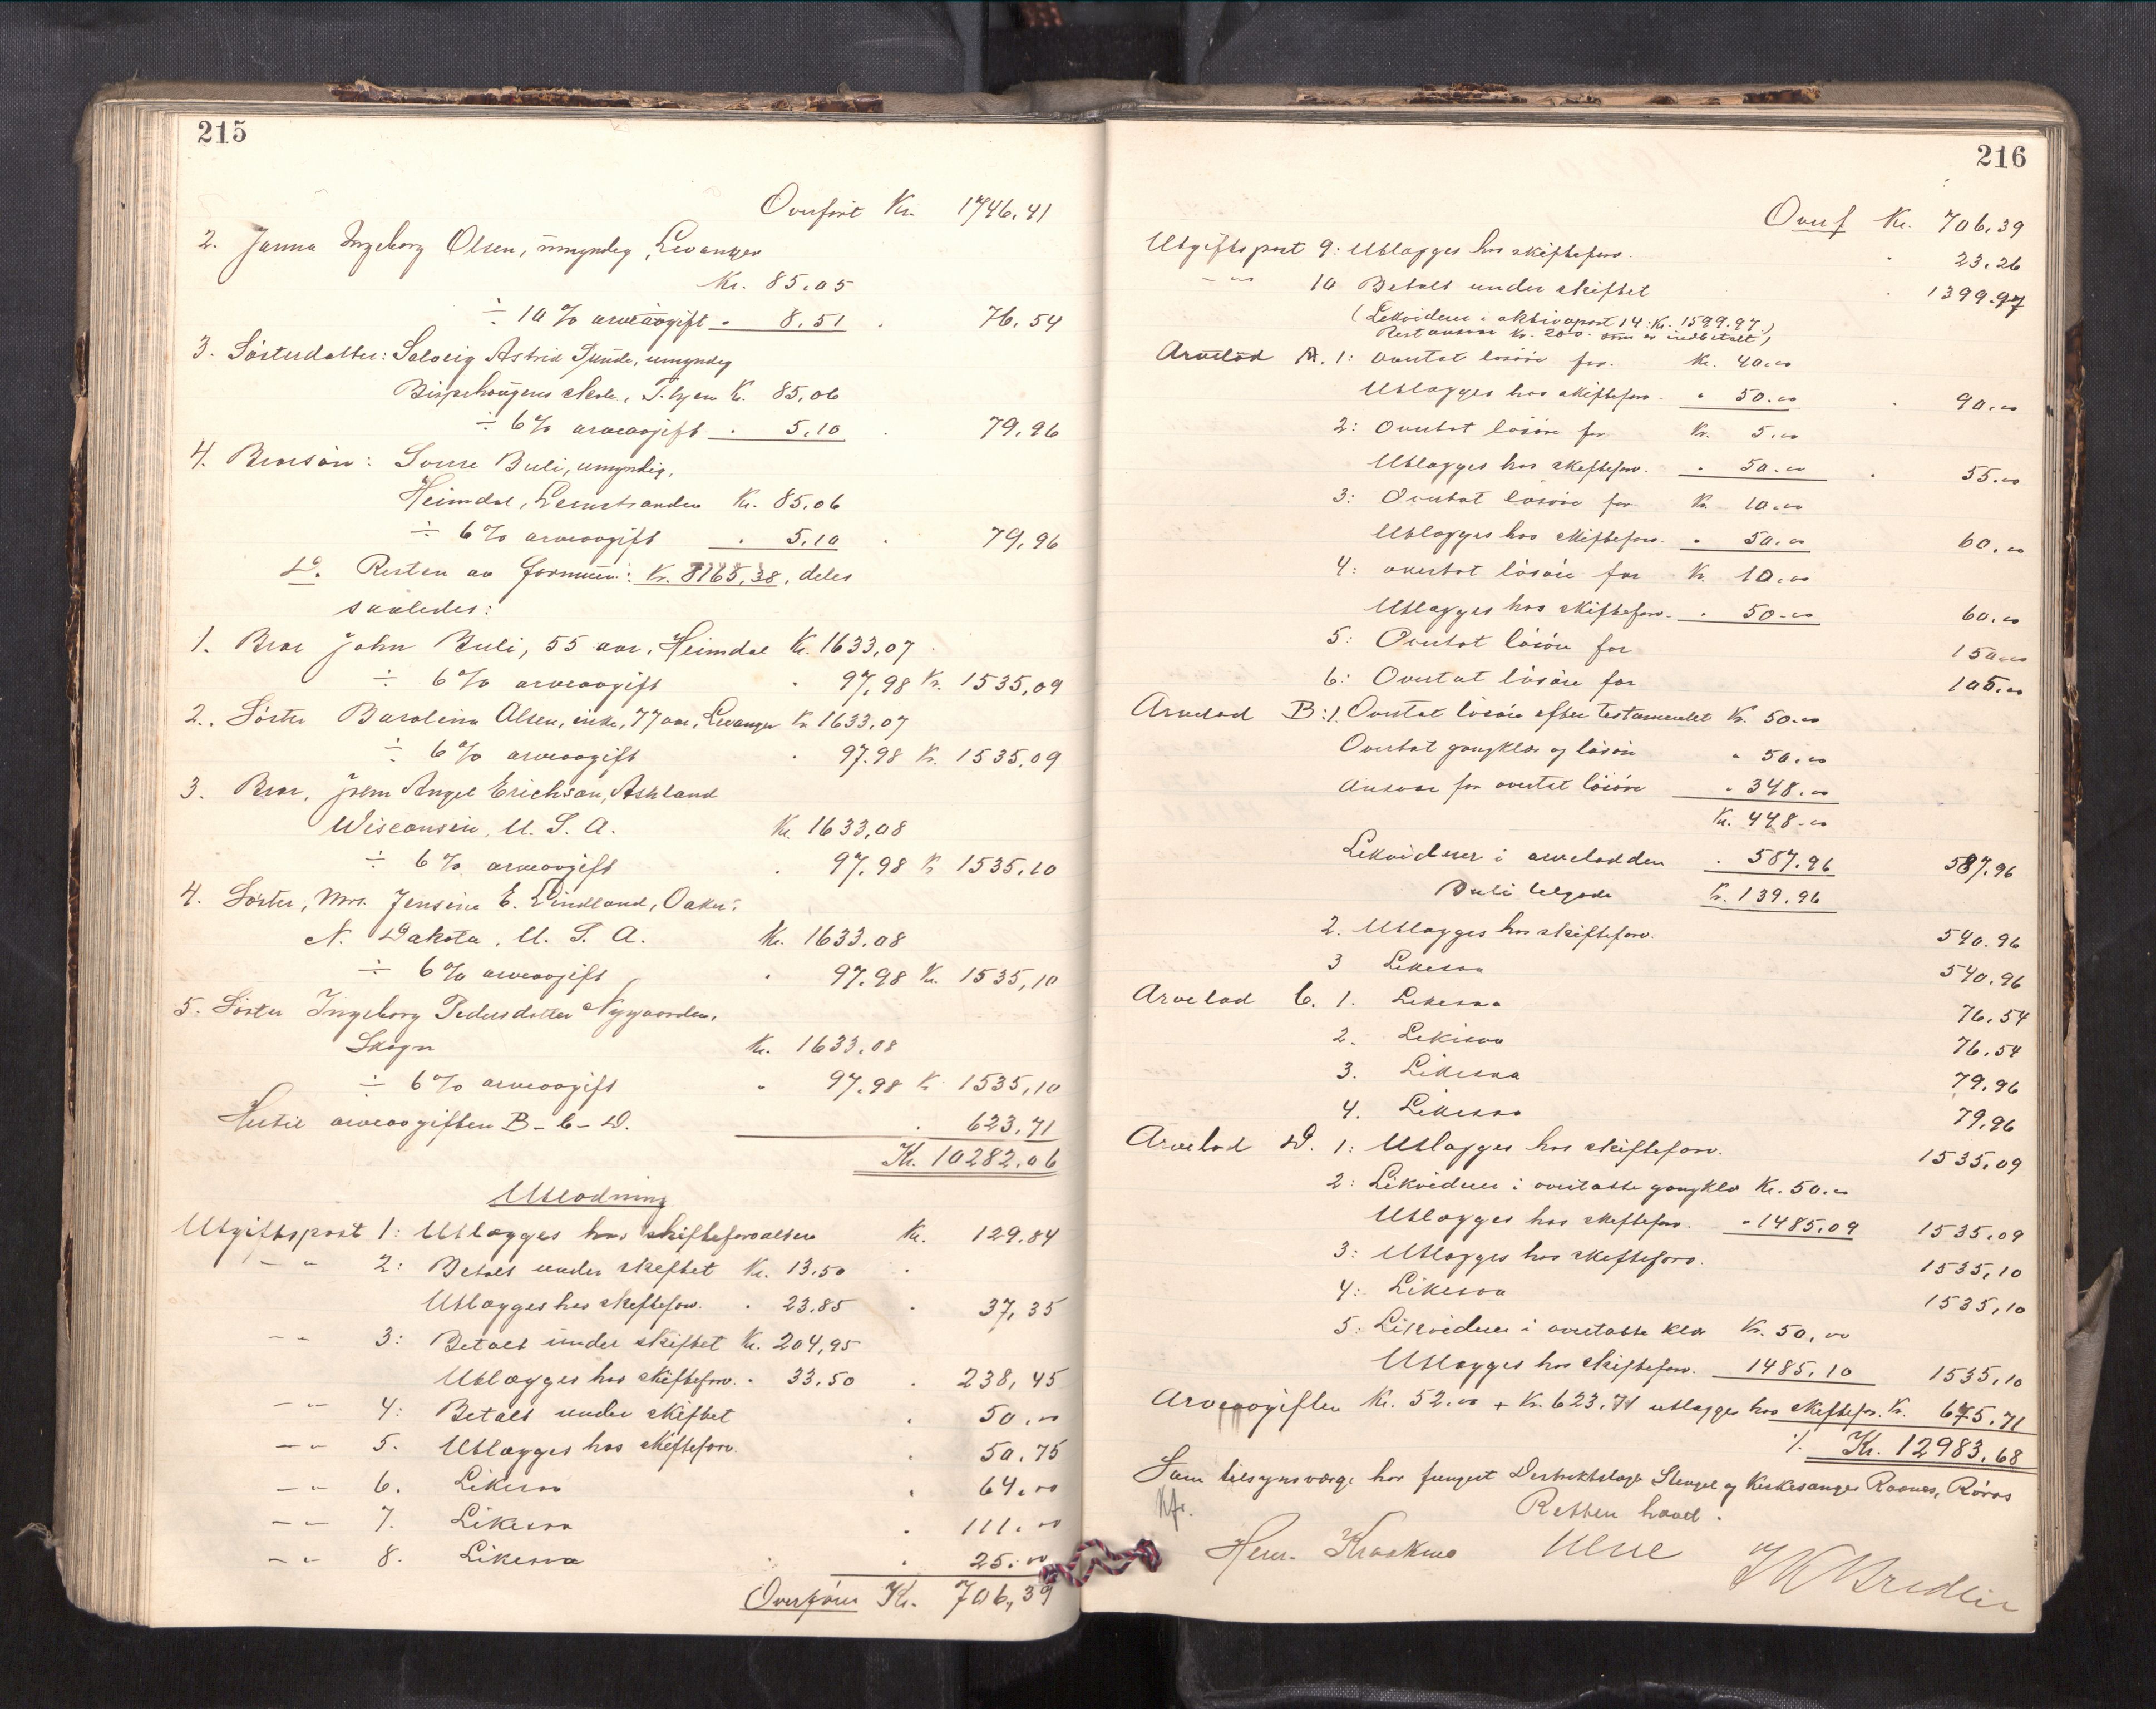 215
Overført Kr. 1746,41
2. Janna Ingeborg Olsen, umyndig, Levanger
Kr. 85,05
÷ 10 % arveavgift " 8,51 . 76,54
3. Søsterdatter: Solveig Astrid Sunde, umyndig
Bispehaugens skole, T.hjem Kr. 85,06
÷ 6 % arveavgift " 5,10 . 79,96
4. Brorsøn: Sverre Buli, umyndig,
Heimdal, Leinstranden Kr. 85,06
÷ 6 % arveavgift " 5,10 . 79,96
D. Resten av formuen: Kr. 8165,38, deles
saaledes:
1. Bror John Buli, 55 aar, Heimdal Kr. 1633,07
÷ 6 % arveavgift " 97,98 Kr. 1535,09
2. Søster Barolina Olsen, enke, 77 aar, Levanger Kr. 1633,07
÷ 6 % arveavgift " 97.98 Kr. 1535,09
3. Bror, John Angel Erichson, Ashland
Wisconsin, U. S. A. Kr. 1633,08
÷ 6 % arveavgift " 97,98 Kr. 1535,10
4. Søster, Mrs. Jensine E. Lindland, Oaku:
N. Dakota, U. S. A. Kr. 1633,08
÷ 6 % arveavgift " 97.98 Kr. 1535,10
5. Søster Ingeborg Pedersdatter Nygaarden,
Skogn Kr. 1633,08
÷ 6 % arveavgift " 97.98 Kr. 1535,10
Hertil arveavgiften B - C - D. " 623,71
Kr. 10282.06
Utlodning
Utgiftspost 1: Utlægges hos skifteforvalteren Kr. 129.84
- " - 2: Betalt under skiftet Kr. 13.50
Utlægges hos skifteforv. " 23.85 " 37,35
- " - 3: Betalt under skiftet Kr. 204,95
Utlægges hos skifteforv. " 33.50 " 238,45
- " - 4: Betalt under skiftet " 50.00
- " - 5. Utlægges hos skifteforv. " 50.75
- " - 6. Likesaa " 64.00
- " - 7. Likesaa " 111.00
- " - 8. Likesaa " 25.00
Overføres Kr. 706,39
216
Overf Kr. 706,39
Utgiftspost 9: Utlægges hos skifteforv. " 23.26
- " - 10 Betalt under skiftet " 1399.97
(Likviderer i aktivapost 14: Kr. 1599.97,
Restansvar Kr. 200.- som er indbetalt)
Arvelod A. 1: Overtat løsøre for Kr. 40.00
Utlægges hos skifteforv. " 50.00 " 90.00
2: Overtat løsøre for Kr. 5.00
Utlægges hos skifteforv. " 50.00 " 55.00
3: Overtat løsøre for Kr. 10.00
Utlægges hos skifteforv. " 50.00 60.00
4: overtat løsøre for Kr. 10.00
Utlægges hos skifteforv. " 50.00 60.00
5: Overtat løsøre for 150.00
6: Overtat løsøre for 105.00
Arvelod B: 1. Overtat løsøre efter testamentet Kr. 50.00
Overtat gangklær og løsøre " 50.00
Ansvar for overtat løsøre " 348.00
Kr. 448.00
Likviderer i arvelodden " 587.96 587.96
Buli tilgode Kr. 139.96
2. Utlægges hos skifteforv. 540.96
3 Likesaa 540.96
Arvelod C. 1. Likesaa 76.54
2. Likesaa 76.54
3. Likesaa 79.96
4. Likesaa 79.96
Arvelod D. 1: Utlægges hos skifteforv. 1535.09
2: Likviderer i overtatte gangklær Kr. 50.00
Utlægges hos skifteforv. " 1485.09 1535.09
3: Utlægges hos skifteforv. 1535,10
4: Likesaa 1535,10
5: Likviderer i overtatte klær Kr. 50,00
Utlægges hos skifteforv. 1485.10 1535,10
Arveavgiften Kr. 52.00 + Kr. 623.71 utlægges hos skiftefor. Kr. 675.71
./. Kr. 12983.68
Som tilsynsværge har fungert Distriktslæge Stengel og Kirkesanger Raanes, Røros
Kfr. Retten hævet.
Henr. Kraakmo